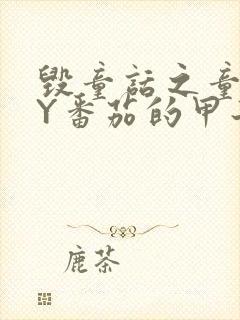 毁童话之童
Y番茄的甲
鹿茶